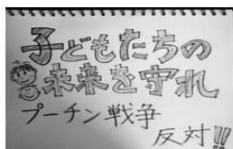 子どもたちの
未来を守れ
プーチン戦争
反対!!